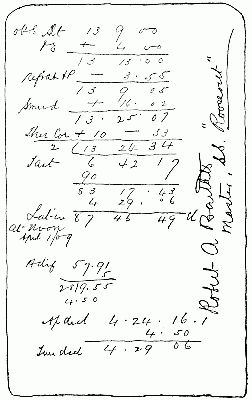 obs Alt 13 9 00
+ 4 00
13 13.00
- 3.55
13 9 05
+ 16.02
13.25.07
+ 10 - 33
2 (13 24 34
6 42 17
90
83 17.43
4 29.06
Lat in 87 46 49 N
At Noon
April 1/09
57.91
5
289.55
4.50
Ap decl 4.24.16.1
4.50
True decl 4.29 06
Robert A Bartlett
Master, S.S. "Roosevelt"